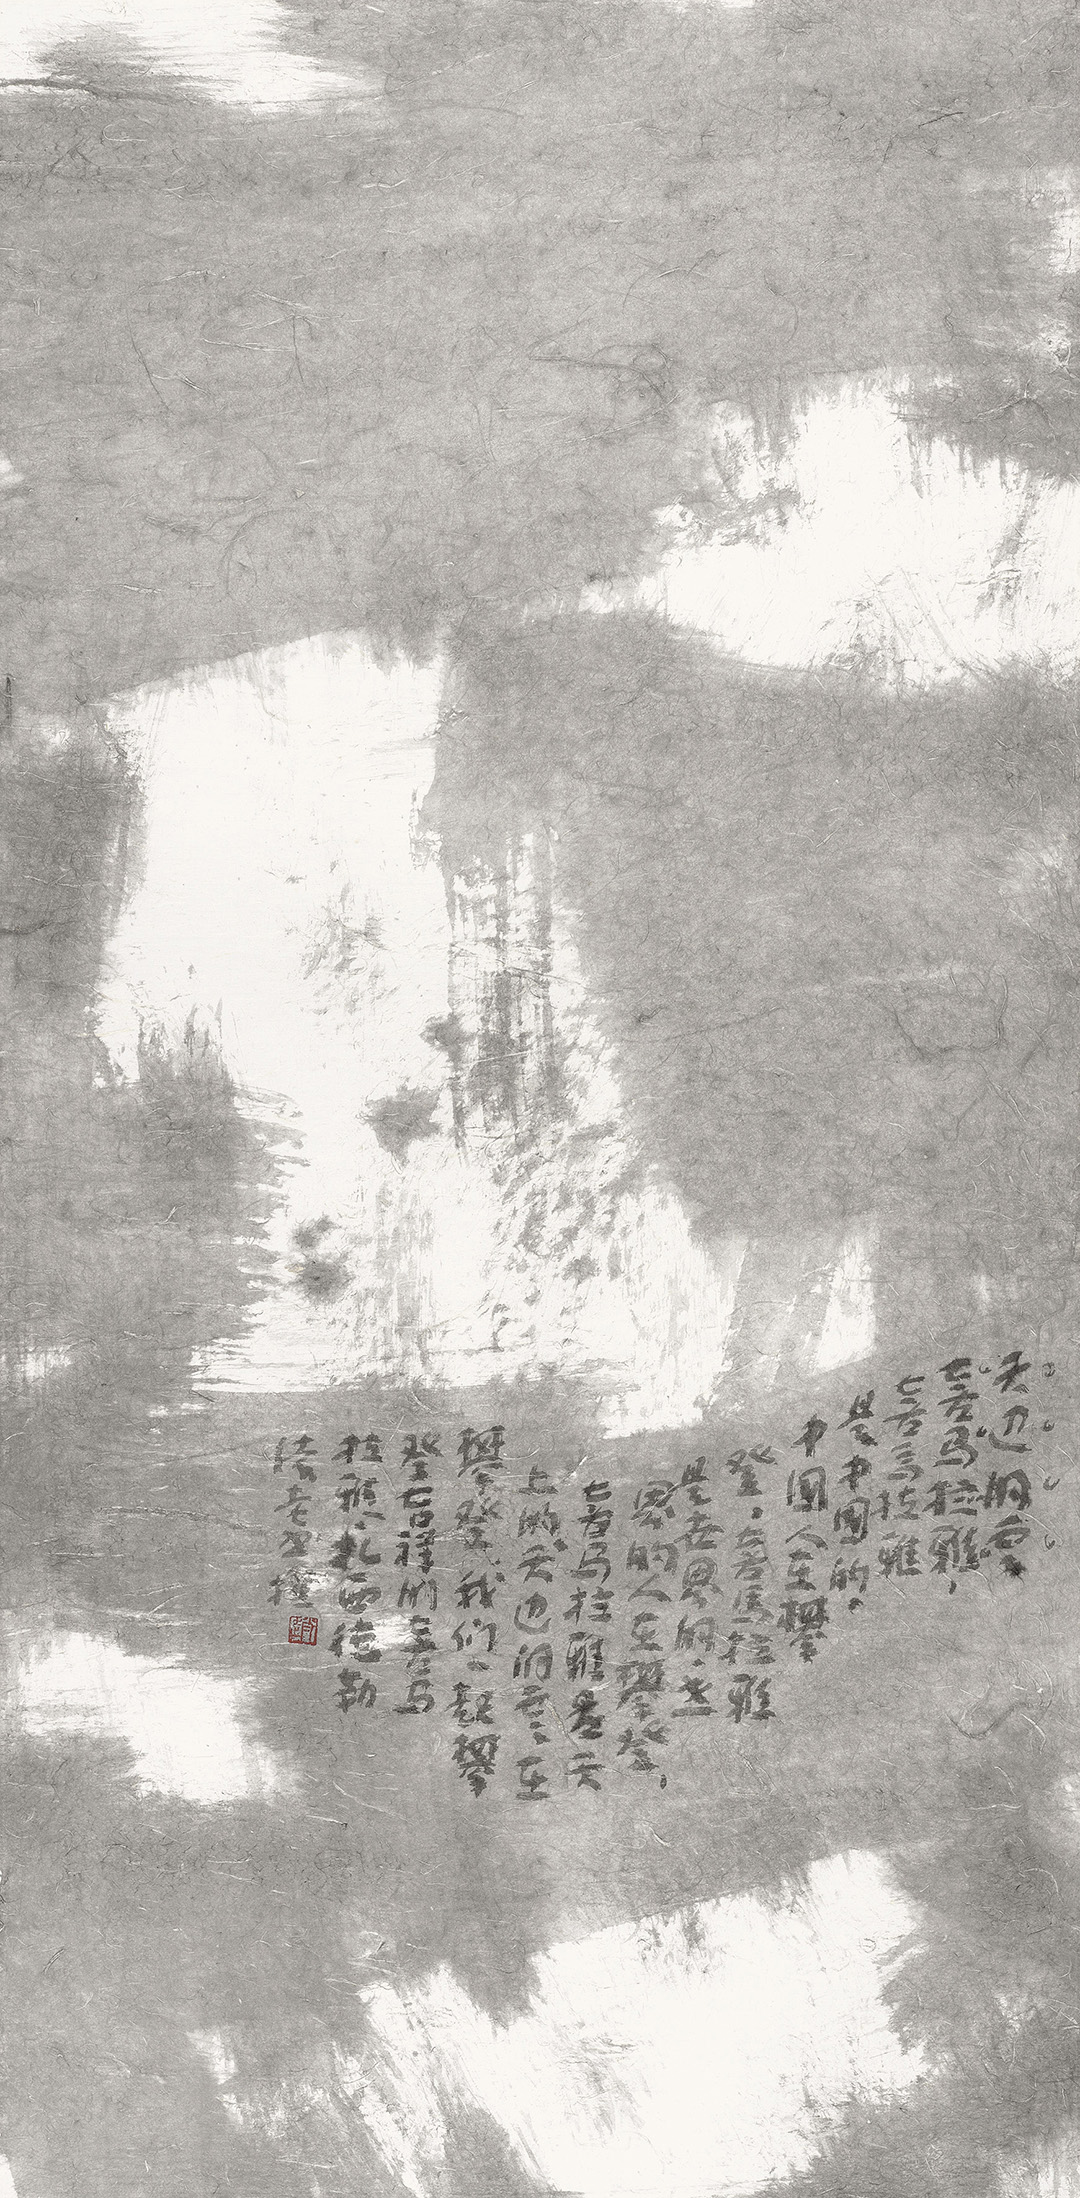 天边的云
喜马拉雅，
喜馬拉雅
是中国的。
中国人在攀
登，喜馬拉雅
是世界的，世
界的人在攀登，
喜马拉雅是天
上的天边的云、在
攀登我们一起攀
登吉祥的喜马
拉雅、扎西德勒